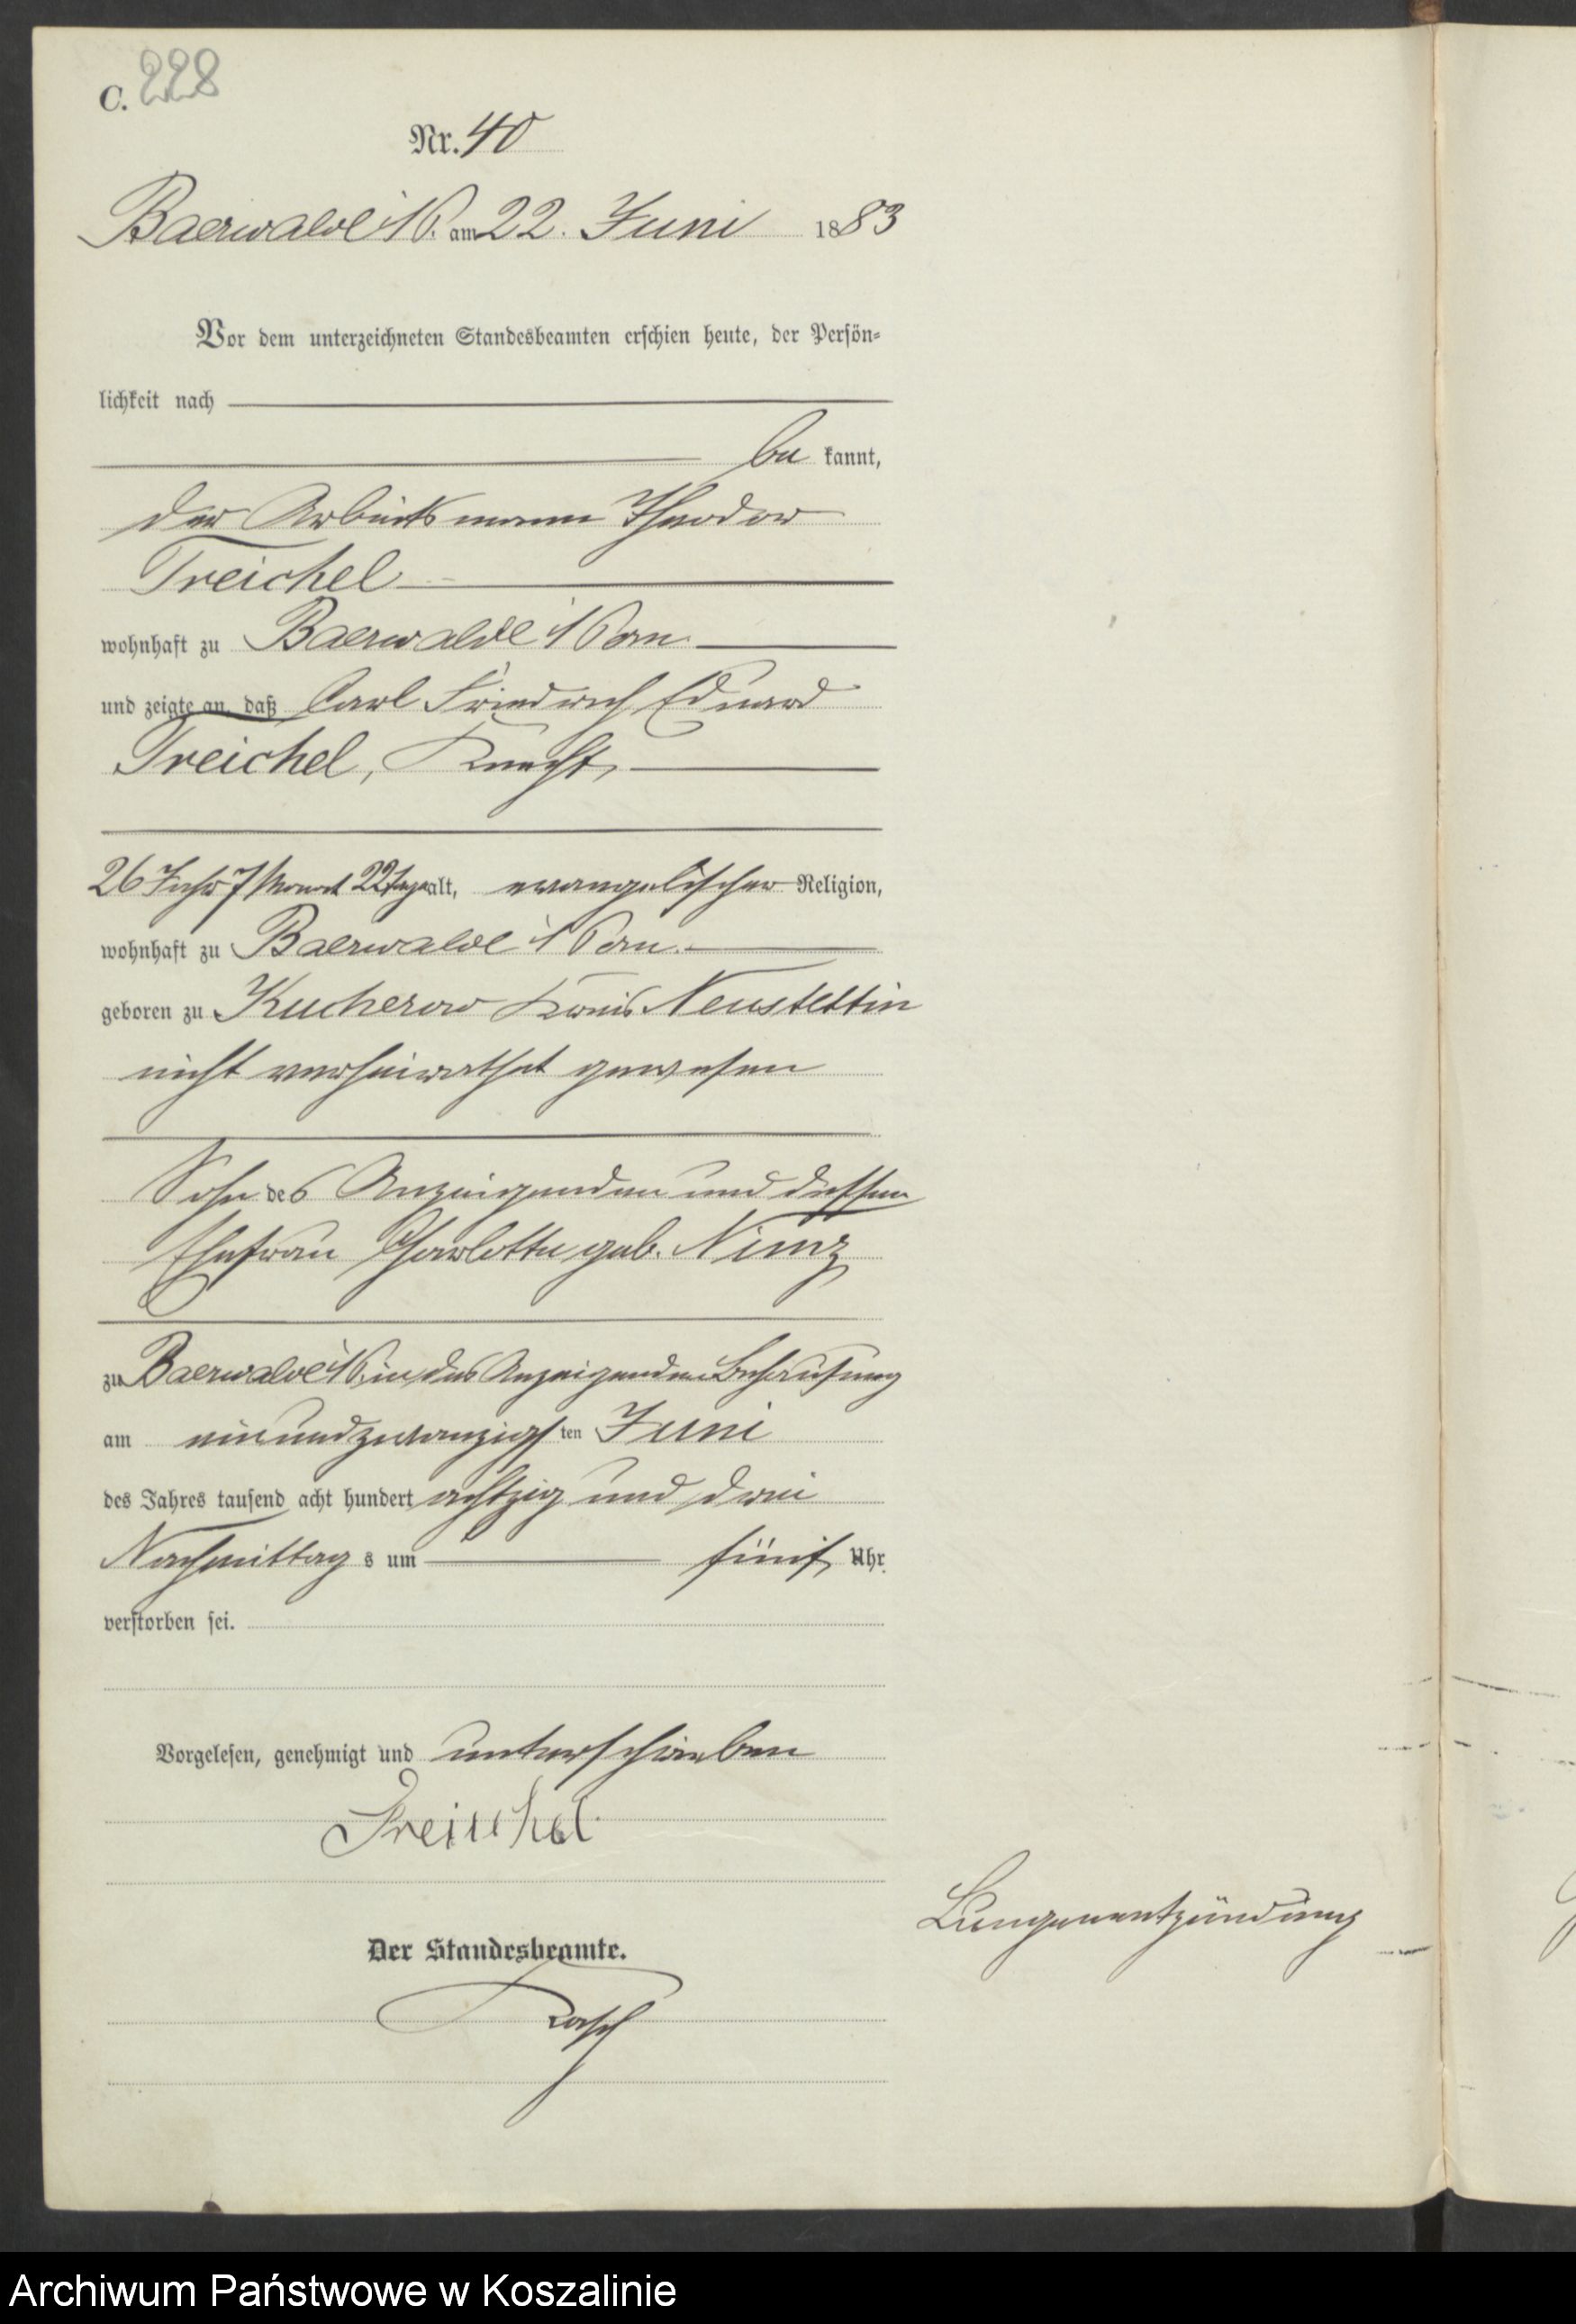 C. 228
Nr. 40
Baerwalde i/P. am 22. Juni 1883
Vor dem unterzeichneten Standesbeamten erschien heute, der Persön-
lichkeit nach
be kannt,
der Arbeitsmann Theodor
Treichel
wohnhaft zu Baerwalde i/Pom.
und zeigte an, daß Carl Friedrich Eduard
Treichel, Knecht,
26 Jahr 7 Monat 22 Tage alt, evangelischer Religion,
wohnhaft zu Baerwalde i/Pom.
geboren zu Kucherow Kreis Neustettin
nicht verheirathet gewesen
Sohn des Anzeigenden und dessen
Ehefrau Charlotte geb. Nimz
zu Baerwalde i/P. in des Anzeigenden Behausung
am einundzwanzigsten Juni
des Jahres tausend acht hundert achtzig und drei
Nachmittags um fünf Uhr
verstorben sei.
Vorgelesen, genehmigt und unterschrieben
Treichel
Lungenentzündung
Der Standesbeamte.
Archiwum Państwowe w Koszalinie